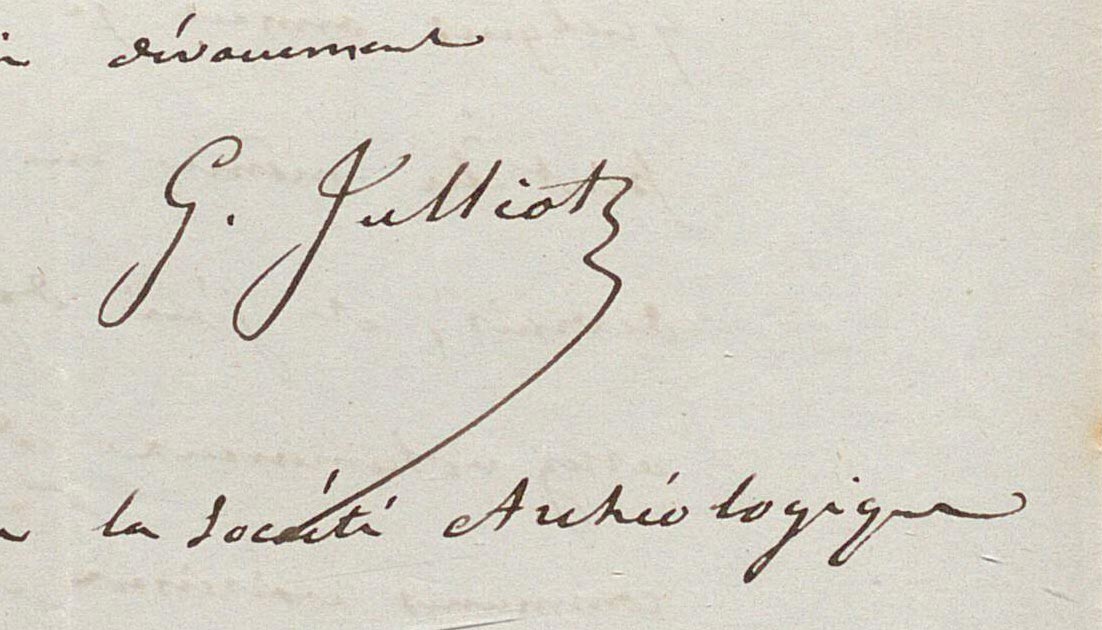 dévouement
G. Julliot
la Société Archéologique